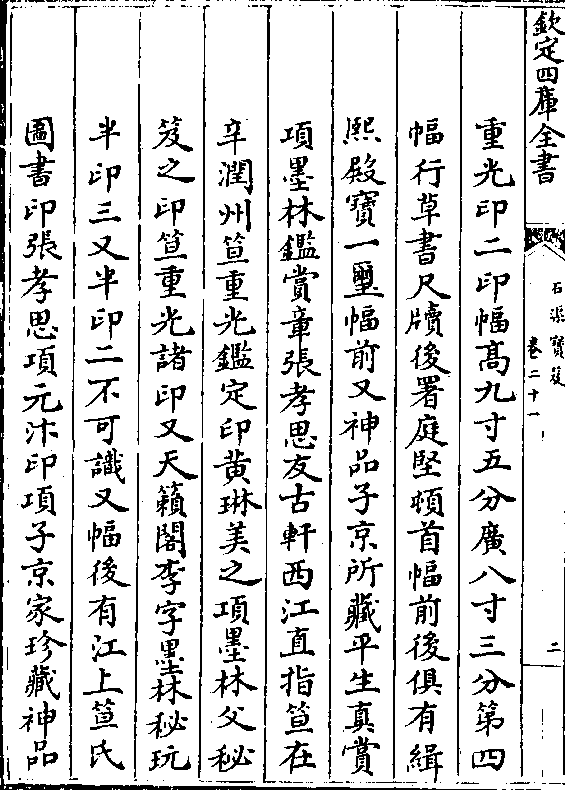 欽定四庫全書
石渠寶笈
卷二十一
二
重光印二印幅髙九寸五分廣八寸三分第四
幅行草書尺牘後署庭堅頓首幅前後俱有緝
熙殿寶一璽幅前又神品子京所藏平生真賞
項墨林鑑賞章張孝思友古軒西江直指笪在
辛潤州笪重光鑑定印黄琳美之項墨林父秘
笈之印笪重光諸印又天籟閣李字墨林秘玩
半印三又半印二不可識又幅後有江上笪氏
圖書印張孝思項元汴印項子京家珍藏神品